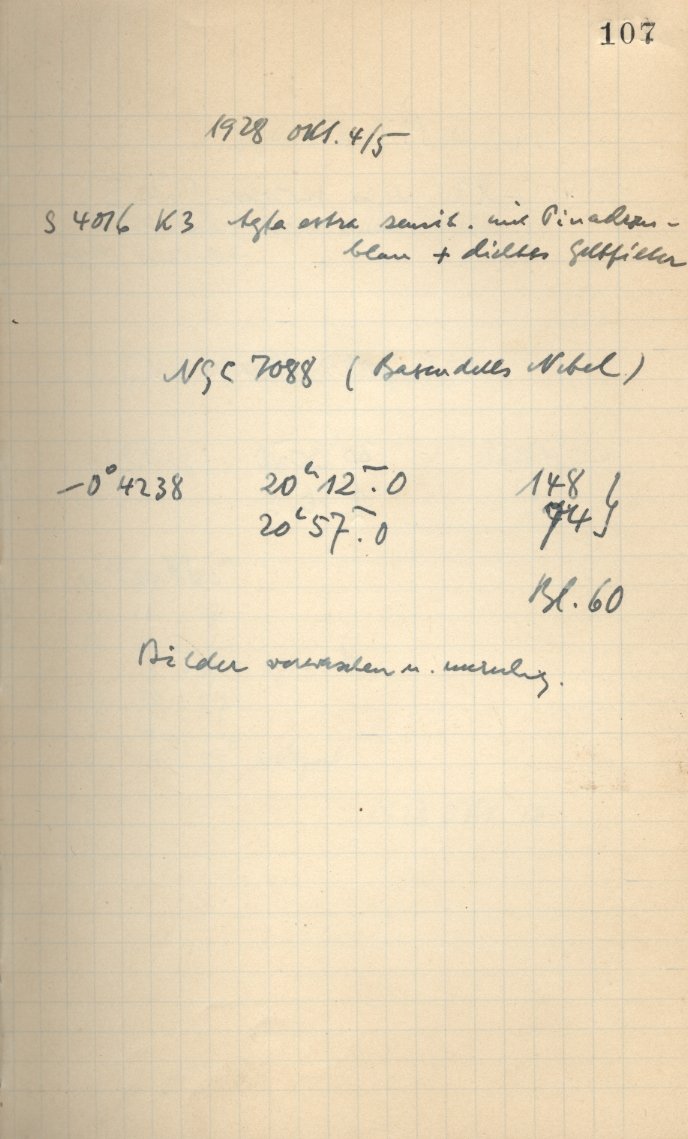 107
1928 Okt. 4/5
S 4016 K3 Agfa extra sensib. mit Pinachrom-
blau + dichtes Gelbfilter
NGC 7088 (Baxendells Nebel)
-0° 4238 20h 12m.0 148 }
20h 57m.0 74 }
Bl. 60
Bilder verwaschen u. unruhig.